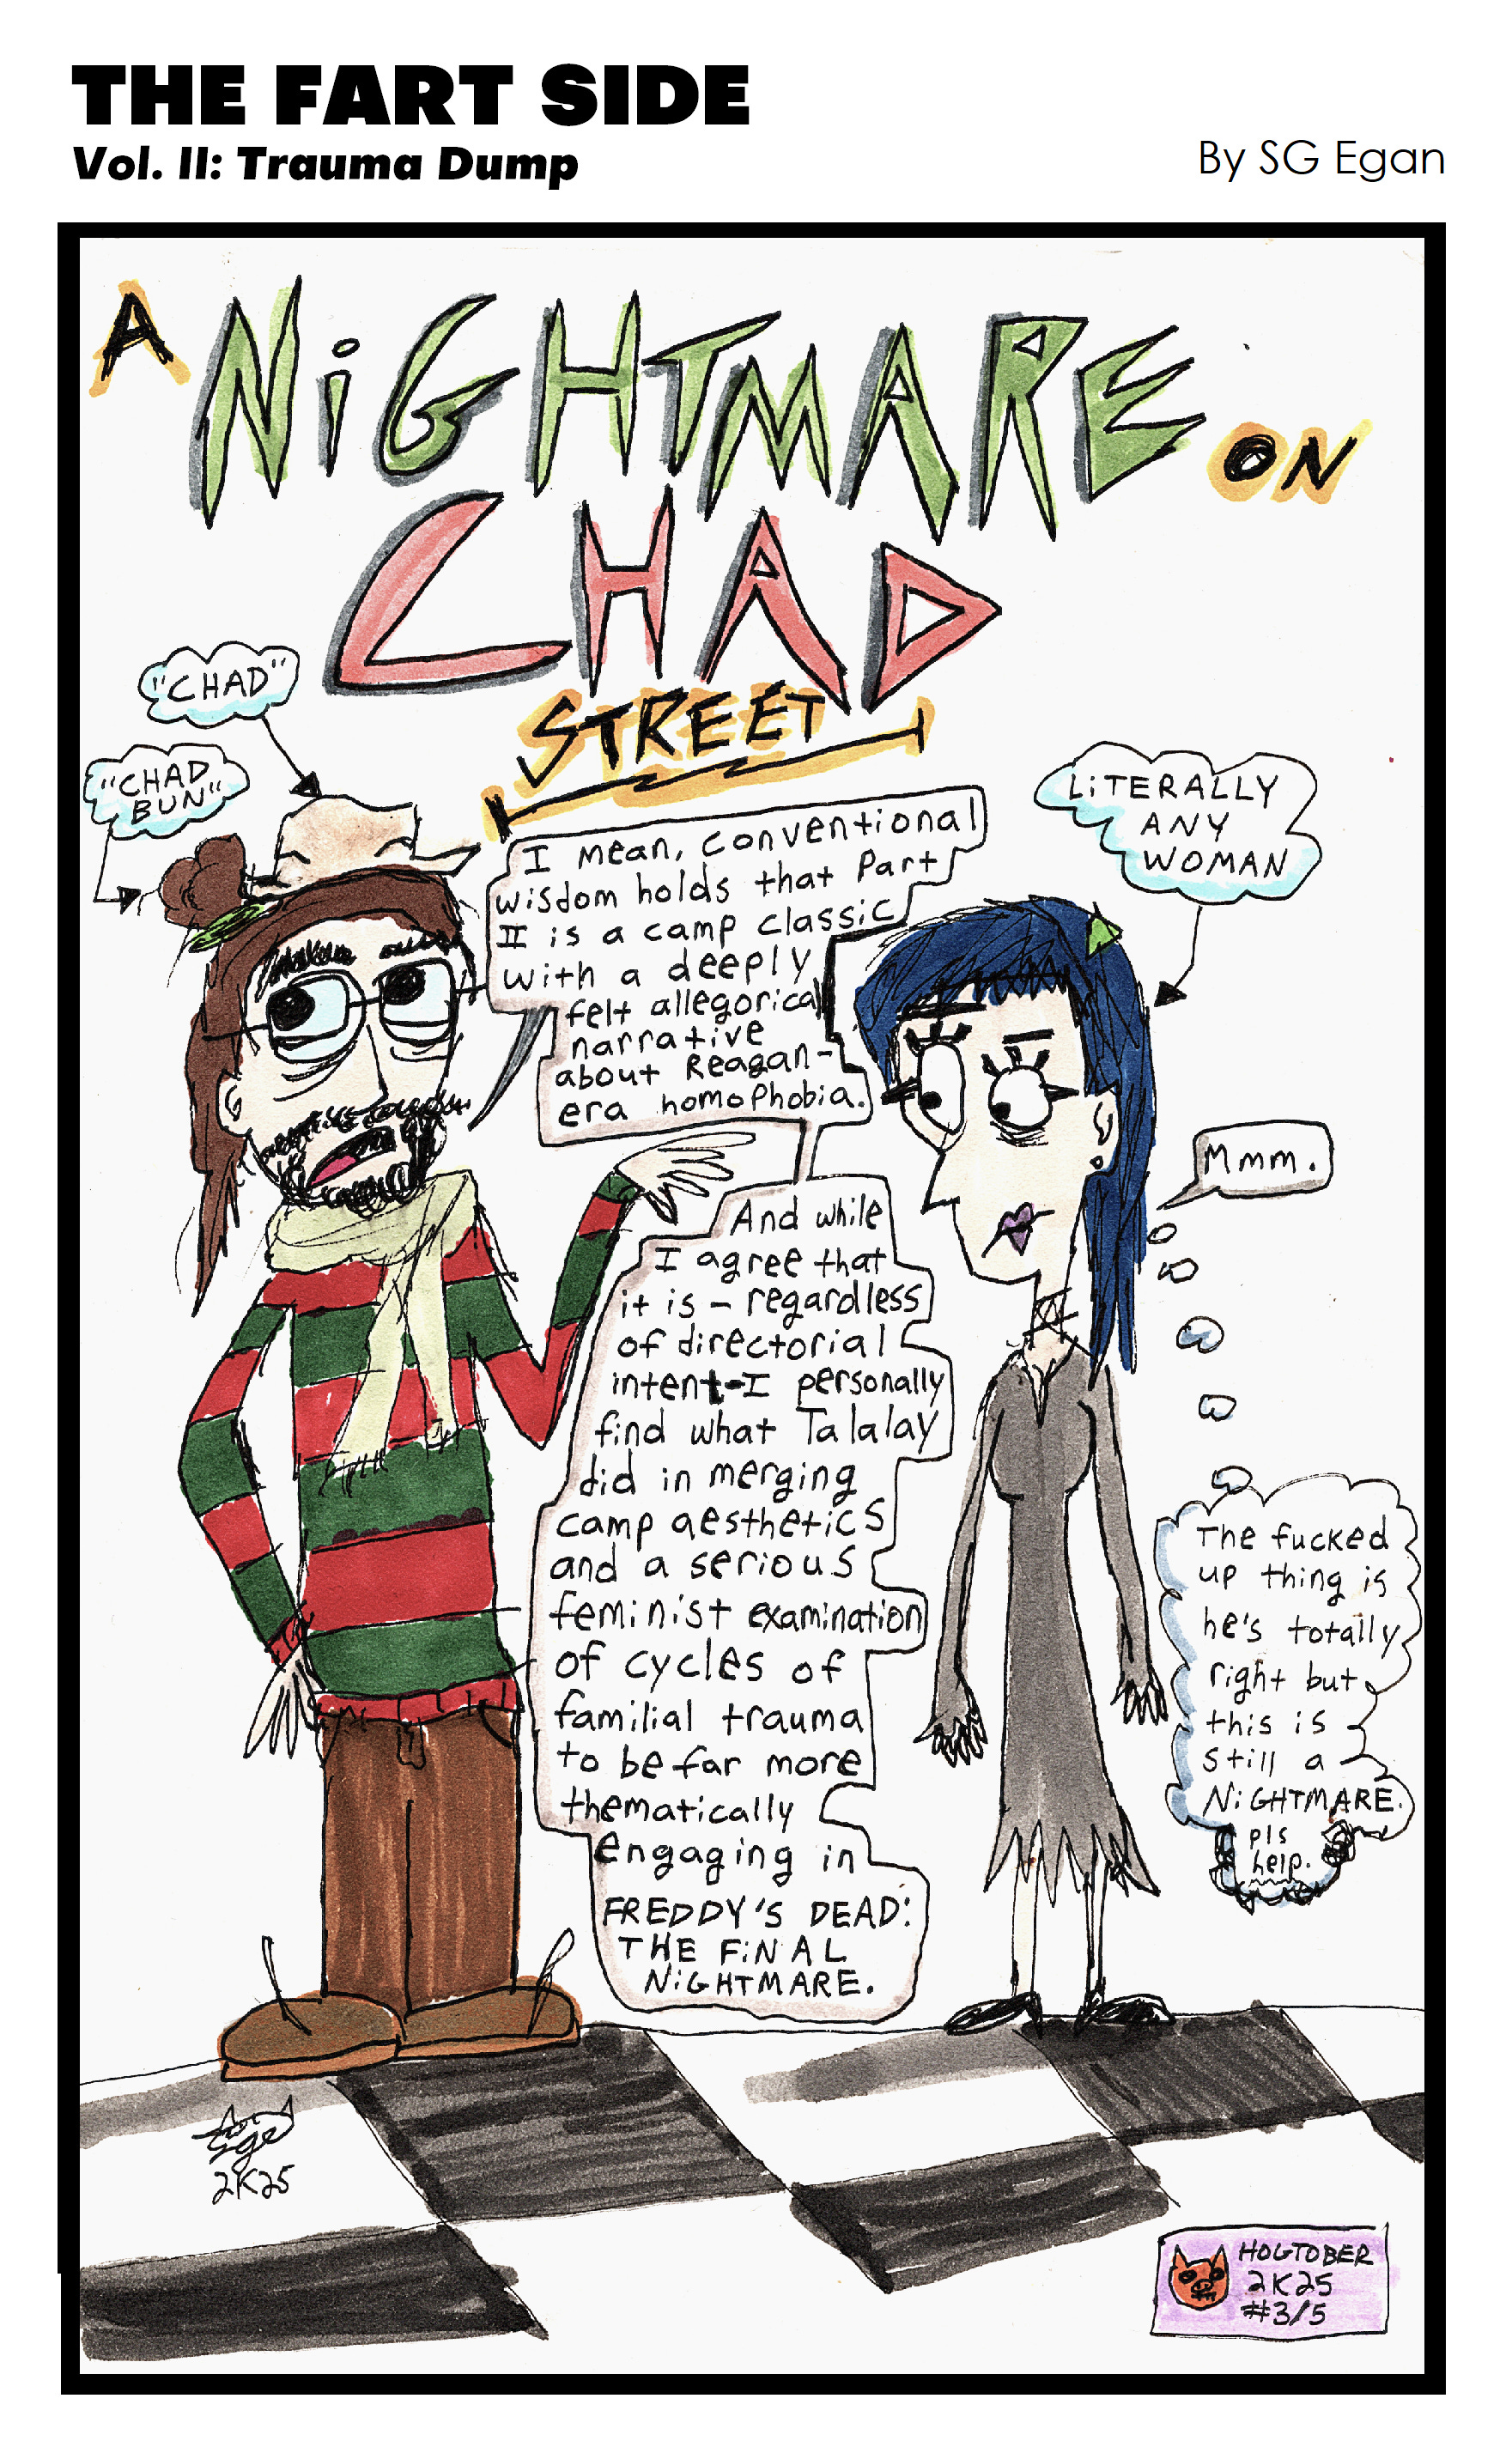 THE FART SIDE
Vol. II: Trauma Dump
By SG Egan
A NiGHTMARE ON
CHAD
STREET
"CHAD"
"CHAD
BUN"
I mean, conventional
wisdom holds that Part
II is a camp classic
with a deeply
felt allegorical
narrative
about Reagan-
era homophobia.
And while
I agree that
it is – regardless
of directorial
intent-I personally
find what Talalay
did in merging
camp aesthetics
and a serious
feminist examination
of cycles of
familial trauma
to be far more
thematically
engaging in
FREDDY'S DEAD:
THE FiNAL
NiGHTMARE.
LiTERALLY
ANY
WOMAN
Mmm.
The fucked
up thing is
he's totally
right but
this is
still a
NiGHTMARE.
pls
help.
sge
2K25
HOGTOBER
2K25
#3/5